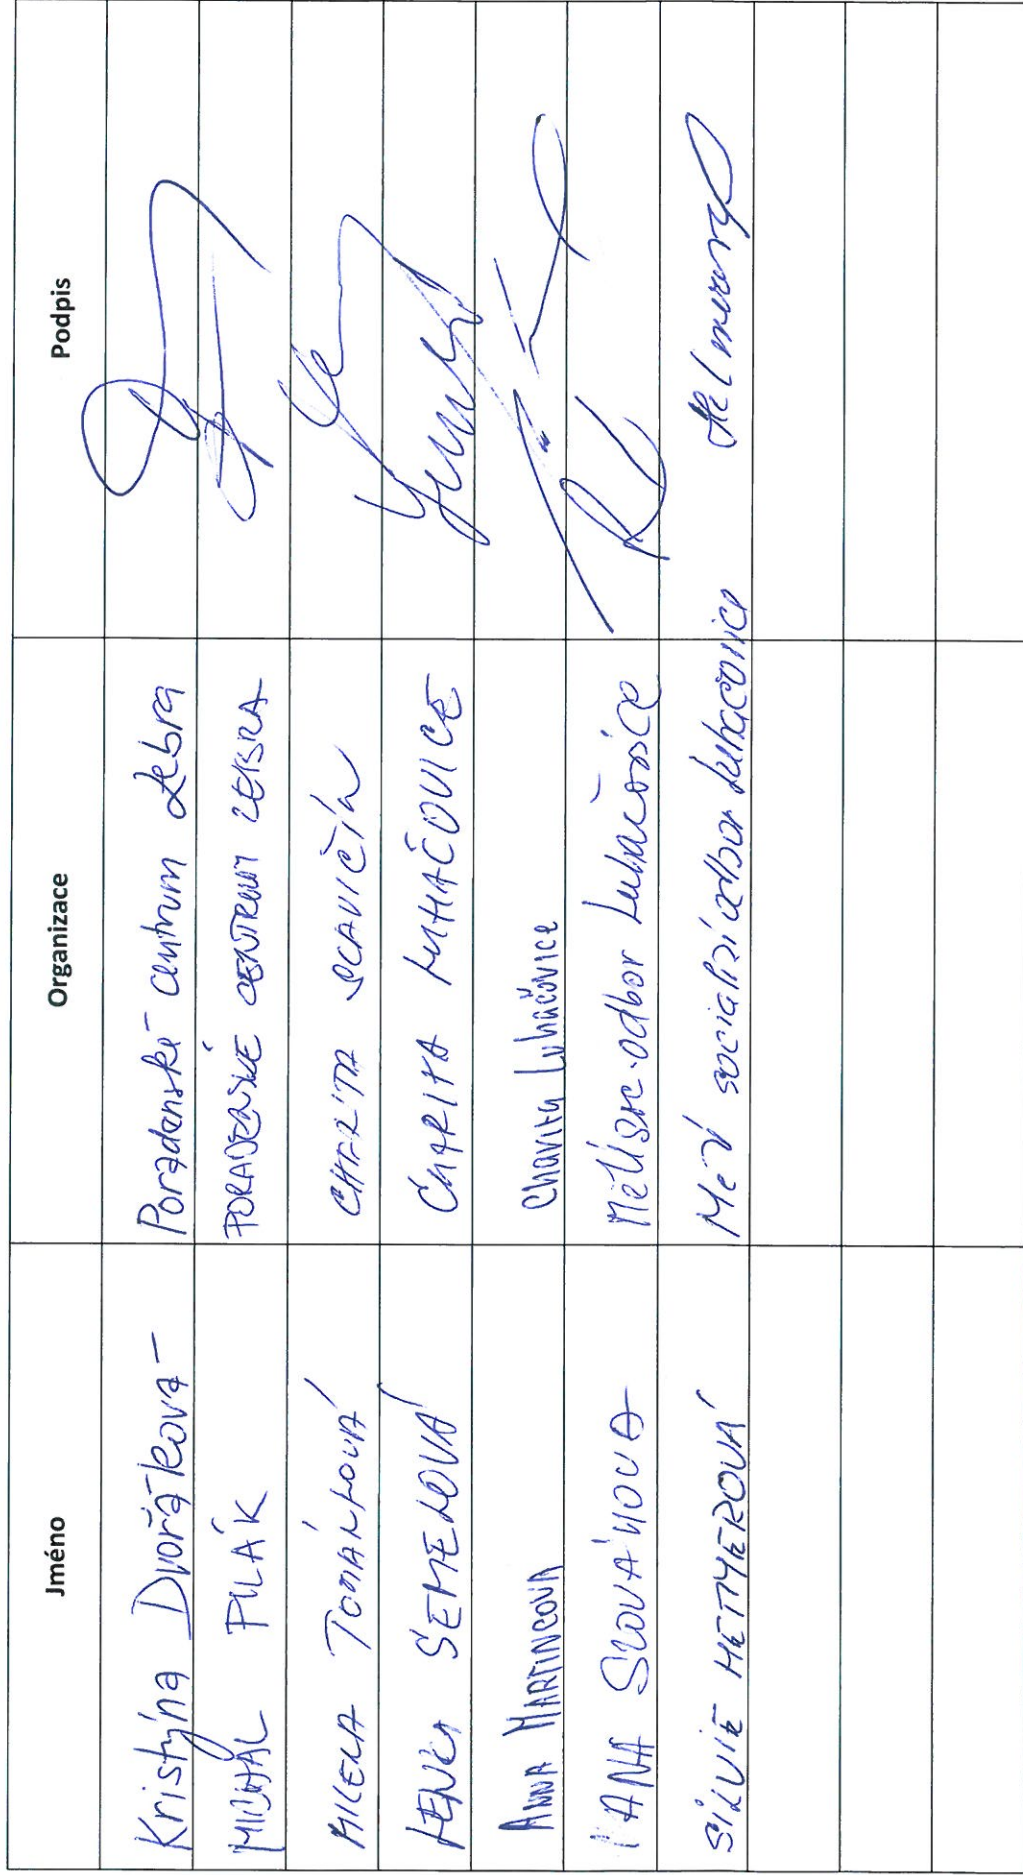 Jméno Organizace Podpis
Kristýna Dvořáková Poradenské centrum Zebra
MICHAL PILÁK PORADENSKÉ CENTRUM ZEBRA
MILENA CHARITA SLAVIČÍN
LENKA SEMELOVÁ CHARITA LUHAČOVICE
ANNA MARTINCOVÁ Charita Luhačovice
JANA odbor Luhačovice
SILVIE sociální odbor Luhačovice